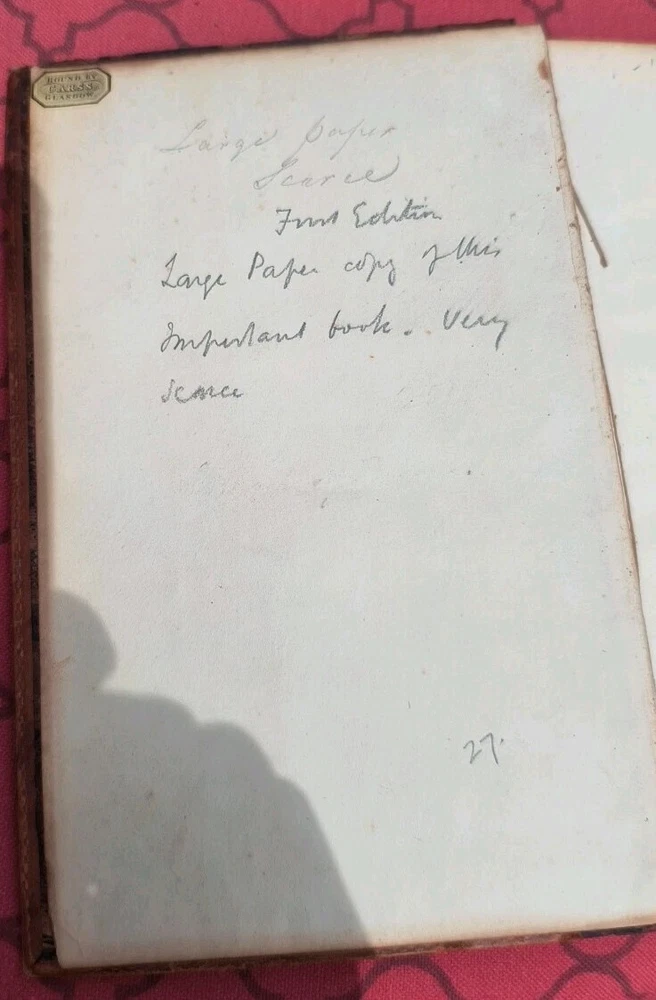 BOUND BY
CARSS
GLASGOW.
Large paper
Scarce
First Edition
Large Paper copy of this
Important book. Very
scarce
27.